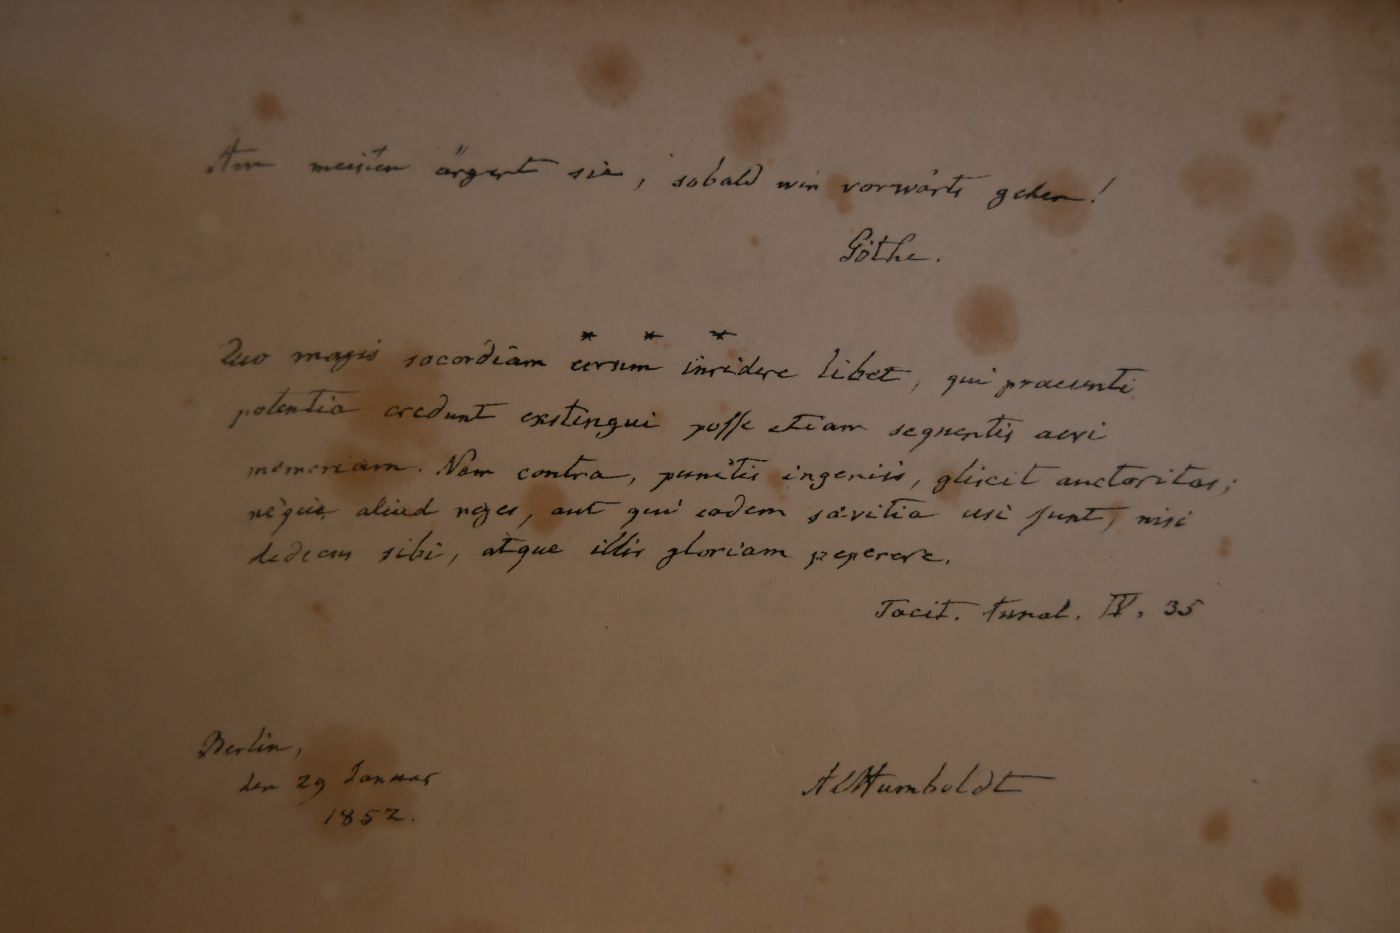 Am meisten ärgert sie, sobald wir vorwärts gehen!
Göthe.
* * *
Quo magis socordiam eorum inridere libet, qui praesenti
potentia credunt exstingui posse etiam sequentis aevi
memoriam. Nam contra, punitis ingeniis, gliscit auctoritas;
neque aliud reges, aut qui eadem sævitia usi sunt, nisi
dedecus sibi, atque illis gloriam peperere.
Tacit. Annal. IV, 35
Berlin,
den 29 Januar
1852.
Al Humboldt